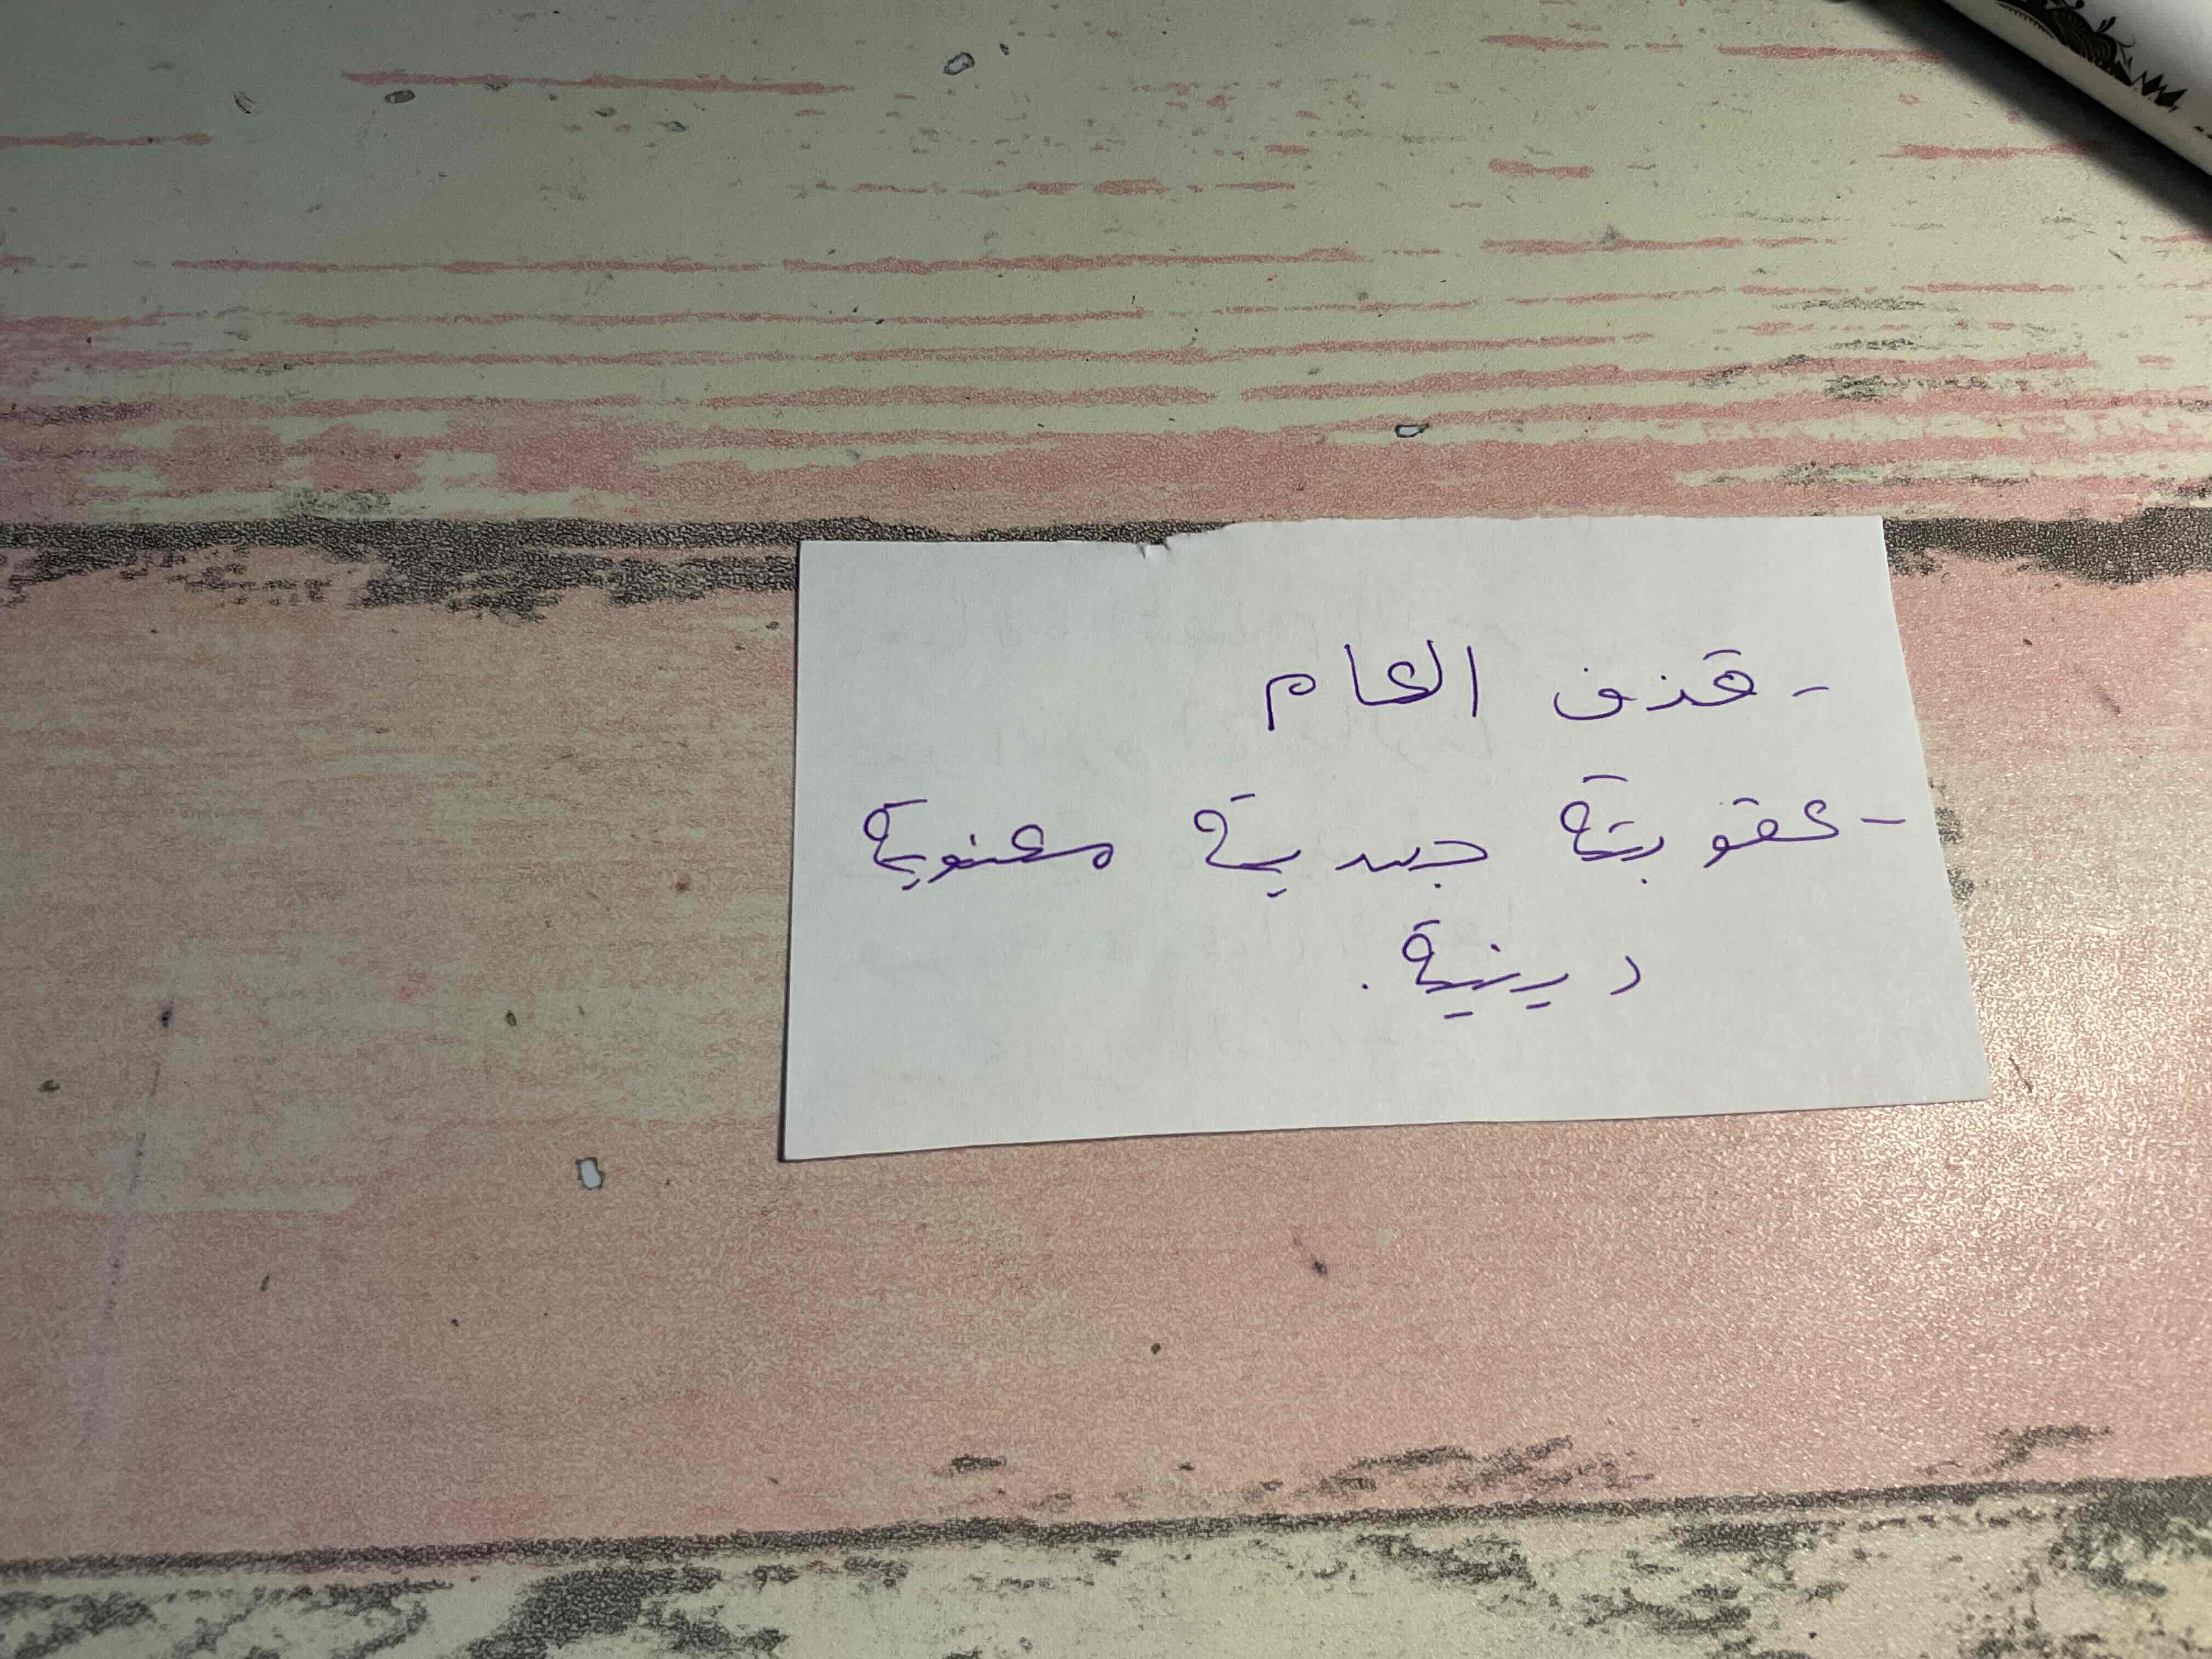 - قذف العام
- عقوبتة جسدية معنوية
دينية.